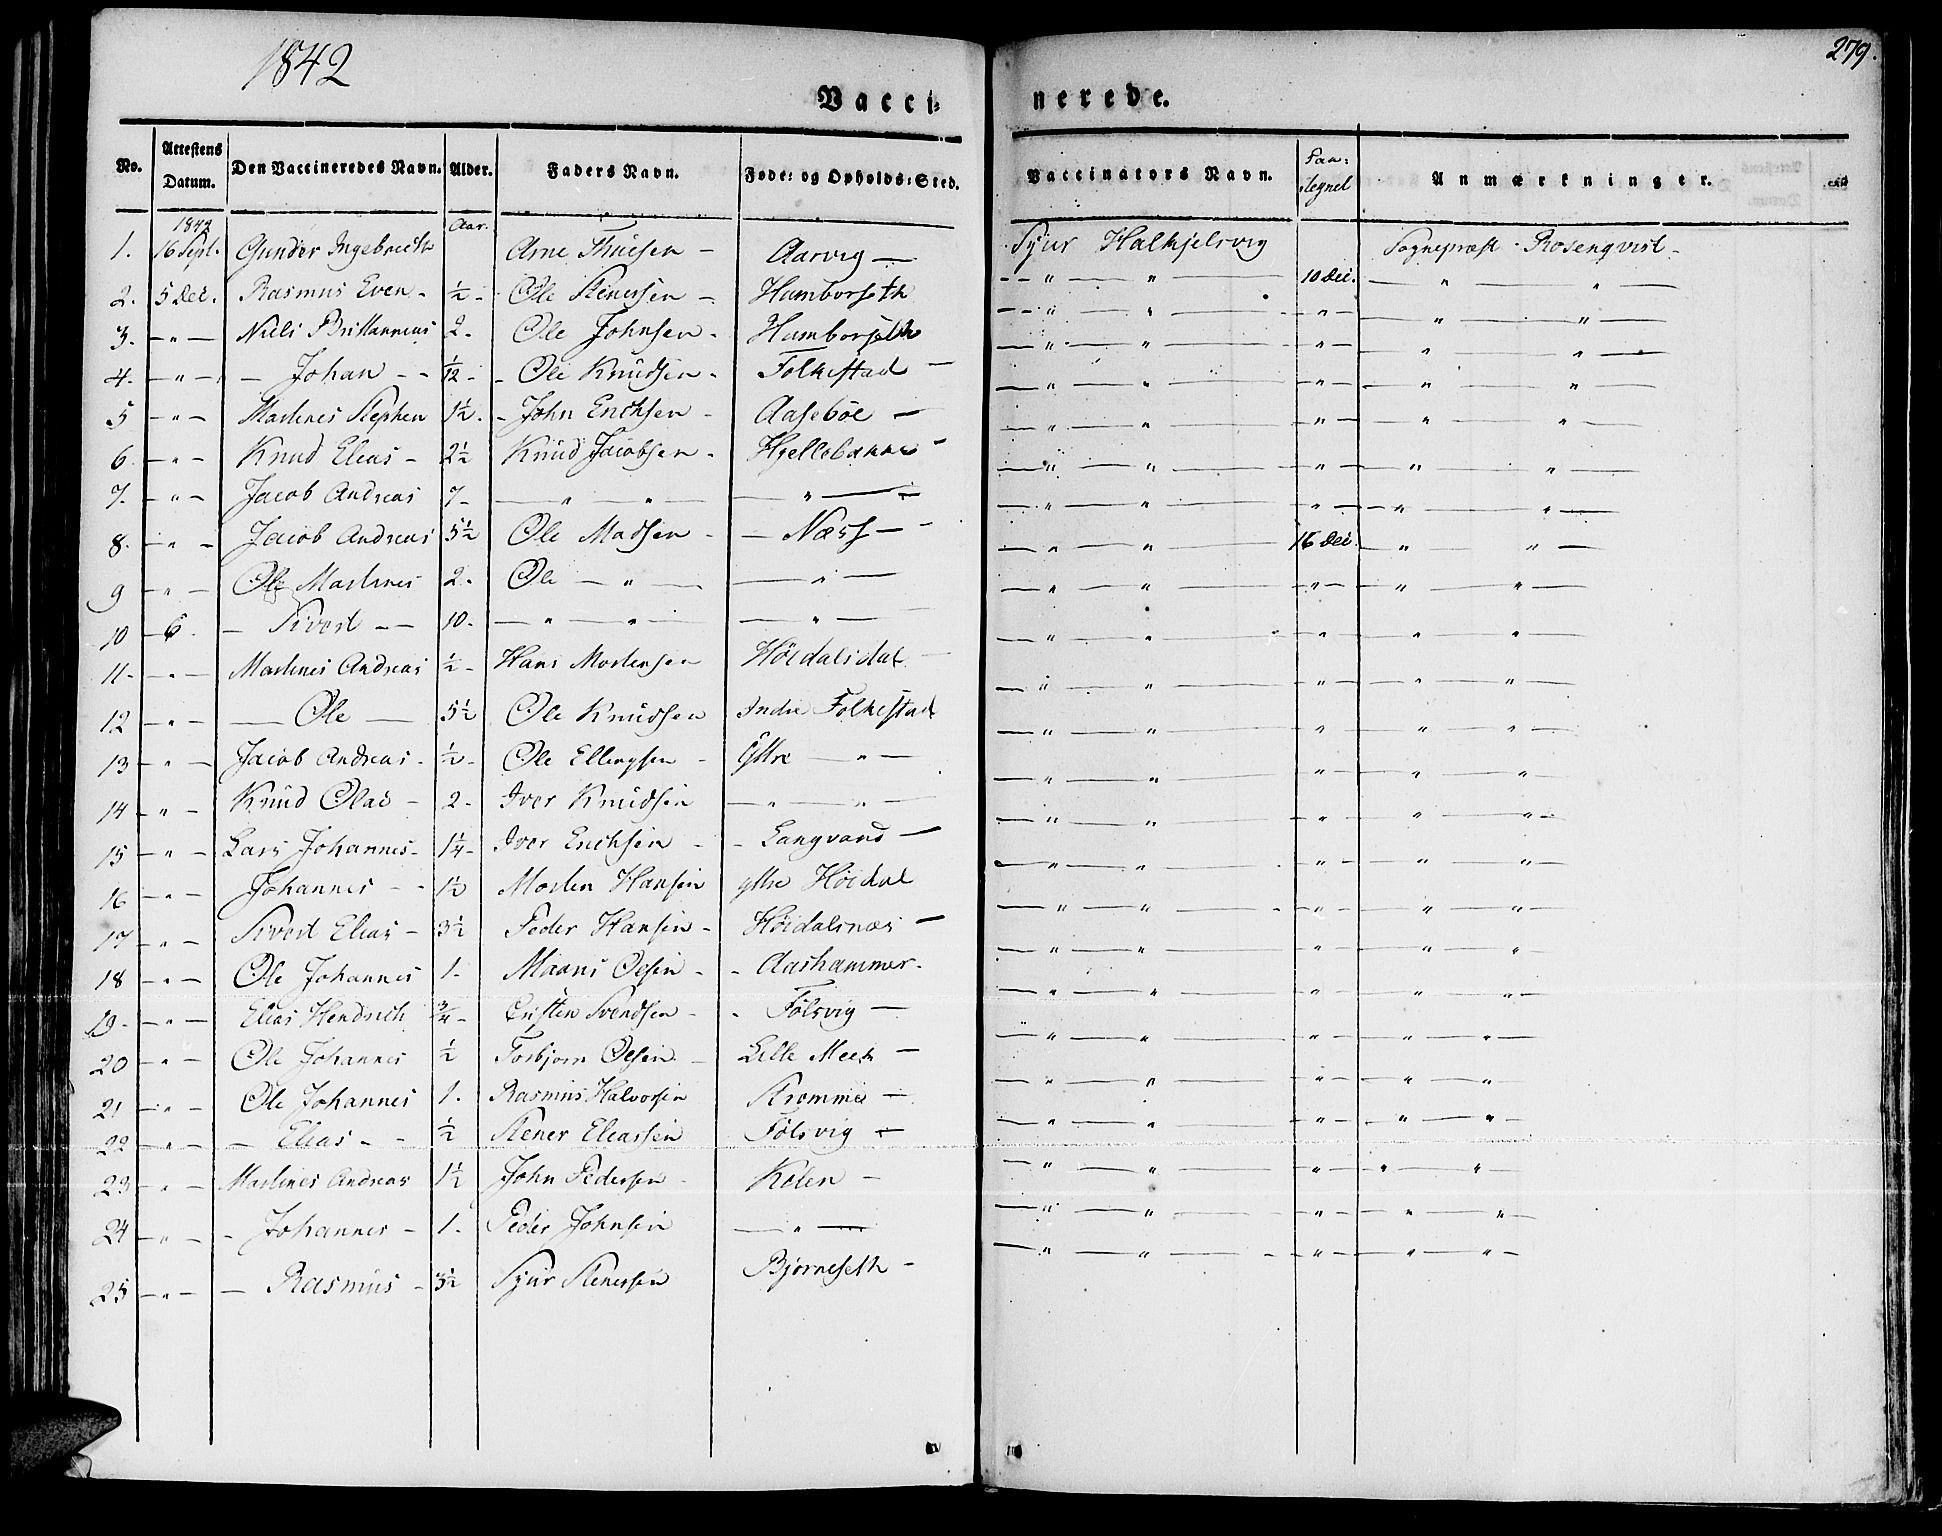 1842
279.
Vacci=
nerede.
No. Attestens Datum. Den Vaccineredes Navn. Alder. Faders Navn. Føde= og Opholds=Sted. Vaccinators Navn. Paa= tegnet Anmærkninger.
1842 Aar.
1. 16 Sept. Gunder Ingebrecth Arne Aarvig — Sjur Halkjelsvig Sognepræst Rosenqvist
2. 5 Dec. Rasmus Even - ½ - Ole Stenersen - Hamborseth — " — " — 10 Dec. — " — " —
3. — " — Niels Brittannius 2 - Ole Johnsen - Hamborseth — " — " — — " — — " — " —
4. — " — — Johan - - 1/12 - Ole Knudsen - Folkestad — — " — " — — " — — " — " —
5 — " — Martines Stephen 1½ - John Erichsen - Aasebøe — — " — " — — " — — " — " —
6. — " — Knud Elias - 2½ Knud Jacobsen - Hjellebakke - — " — " — — " — — " — " —
7. — " — Jacob Andreas 7 - — " — " — — " — — " — " — — " — — " — " —
8. — " — Jacob Andreas 5½ Ole Madsen - — Næss — — " — " — — " — — " — " —
9 — " — Ole Martines 2. Ole — " — — " — — " — " — 16 Dec. — " — " —
10 — 6. — Sivert — — 10. — " — " — — " — — " — " — — " — — " — " —
11. — " — Martines Andreas ½ - Hans Mortensen Høidalsdal — — " — " — — " — — " — " —
12 — " — — Ole — 5½ Ole Knudsen Indre Folkestad — " — " — — " — — " — " —
13 — " — Jacob Andreas - ½ - Ole Ellingsen - Yttre — " — — " — " — — " — — " — " —
14 — " — Knud Olai - 2 - Iver Knudsen — " — " — — " — " — — " — — " — " —
15 — " — Lars Johannes - 1¼ - Iver Erichsen - - Langvand — — " — " — — " — — " — " —
16 — " — Johannes - - 1½ Morten Hansen yttre Høidal — " — " — — " — — " — " —
17 — " — Sivert Elias - 3½ Peder Hansen - Høidalsnæs — — " — " — — " — — " — " —
18 — " — Ole Johannes 1. Maans Olsen - - Aashammer. — " — " — — " — — " — " —
19. — " — Elias Hendrich ¾ - Cristen Svendsen - - Følsvig — — " — " — — " — — " — " —
20 — " — Ole Johannes ½ Torbjørn Olsen - Lille Meek — — " — " — — " — — " — " —
21 — " — Ole Johannes 1. Rasmus Halvorsen Strømme — — " — " — — " — — " — " —
22 — " — — Elias - - ½ Stener Eleassen Følsvig — — " — " — — " — — " — " —
23 — " — Martines Andreas 1½ John Pedersen - Kolen — — " — " — — " — — " — " —
24 — " — - Johannes - 1. Peder Johnsen — " — — " — " — — " — — " — " —
25 — " — — Rasmus - 3½ Sjur Stenersen Bjørneseth - — " — " — — " — — " — " —